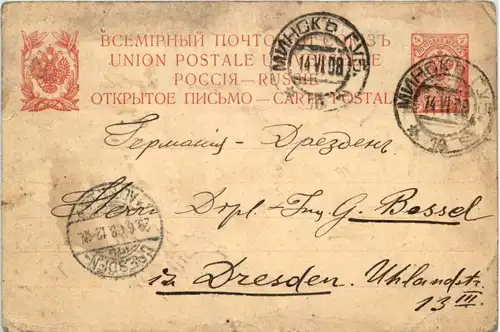 ВСЕМІРНЫЙ ПОЧТО ЗЪ
UNION POSTALE U NE
РОССІЯ — RUSSIE
ОТКРЫТОЕ ПИСЬМО — CARTE POSTALE
МИНСКЪ ГУБ.
14 VI 08
МИНСКЪ ГУБ.
14 VI 08
Германія — Дрезденъ
Herrn Dipl-Ing G. Bassel
in Dresden. Uhlandstr.
13 III
DRESDEN